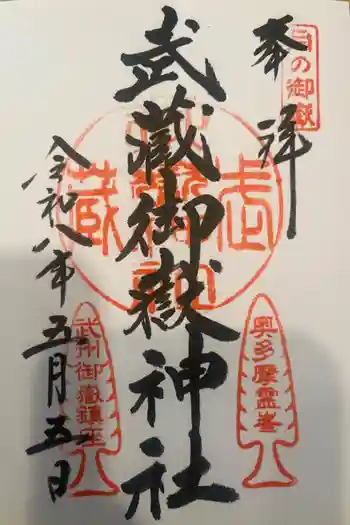 奉拝
日の御嶽
武蔵御嶽神社
奥多摩霊峯
武州御嶽鎮座
令和八年五月五日